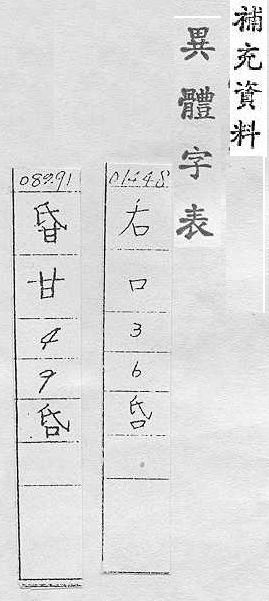 補充資料
異體字表
01448
右
口
3
6
𠯑
08991
甘
4
9